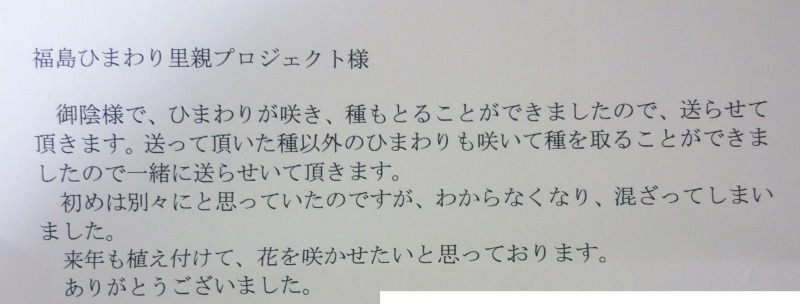 福島ひまわり里親プロジェクト様
御陰様で、ひまわりが咲き、種もとることができましたので、送らせて
頂きます。送って頂いた種以外のひまわりも咲いて種を取ることができま
したので一緒に送らせいて頂きます。
初めは別々にと思っていたのですが、わからなくなり、混ざってしまい
ました。
来年も植え付けて、花を咲かせたいと思っております。
ありがとうございました。